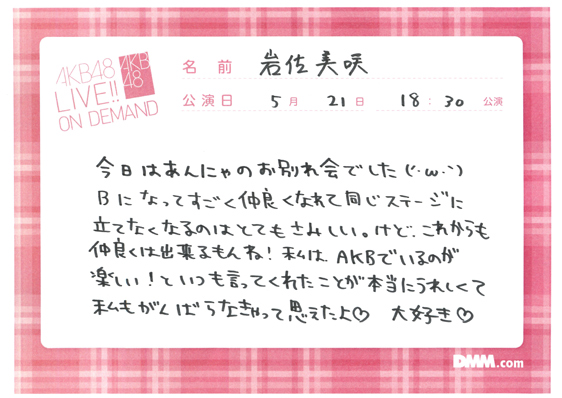 AKB48
LIVE!!
ON DEMAND
AKB
48
名前 岩佐美咲
公演日 5月 21日 18:30 公演
今日はあんにゃのお別れ会でした(´･ω･`)
Bになってすごく仲良くなれて同じステージに
立てなくなるのはとてもさみしい。けど、これからも
仲良くは出来るもんね！私は、AKBでいるのが
楽しい！といつも言ってくれたことが本当にうれしくて
私もがんばらなきゃって思えたよ♡ 大好き♡
DMM.com